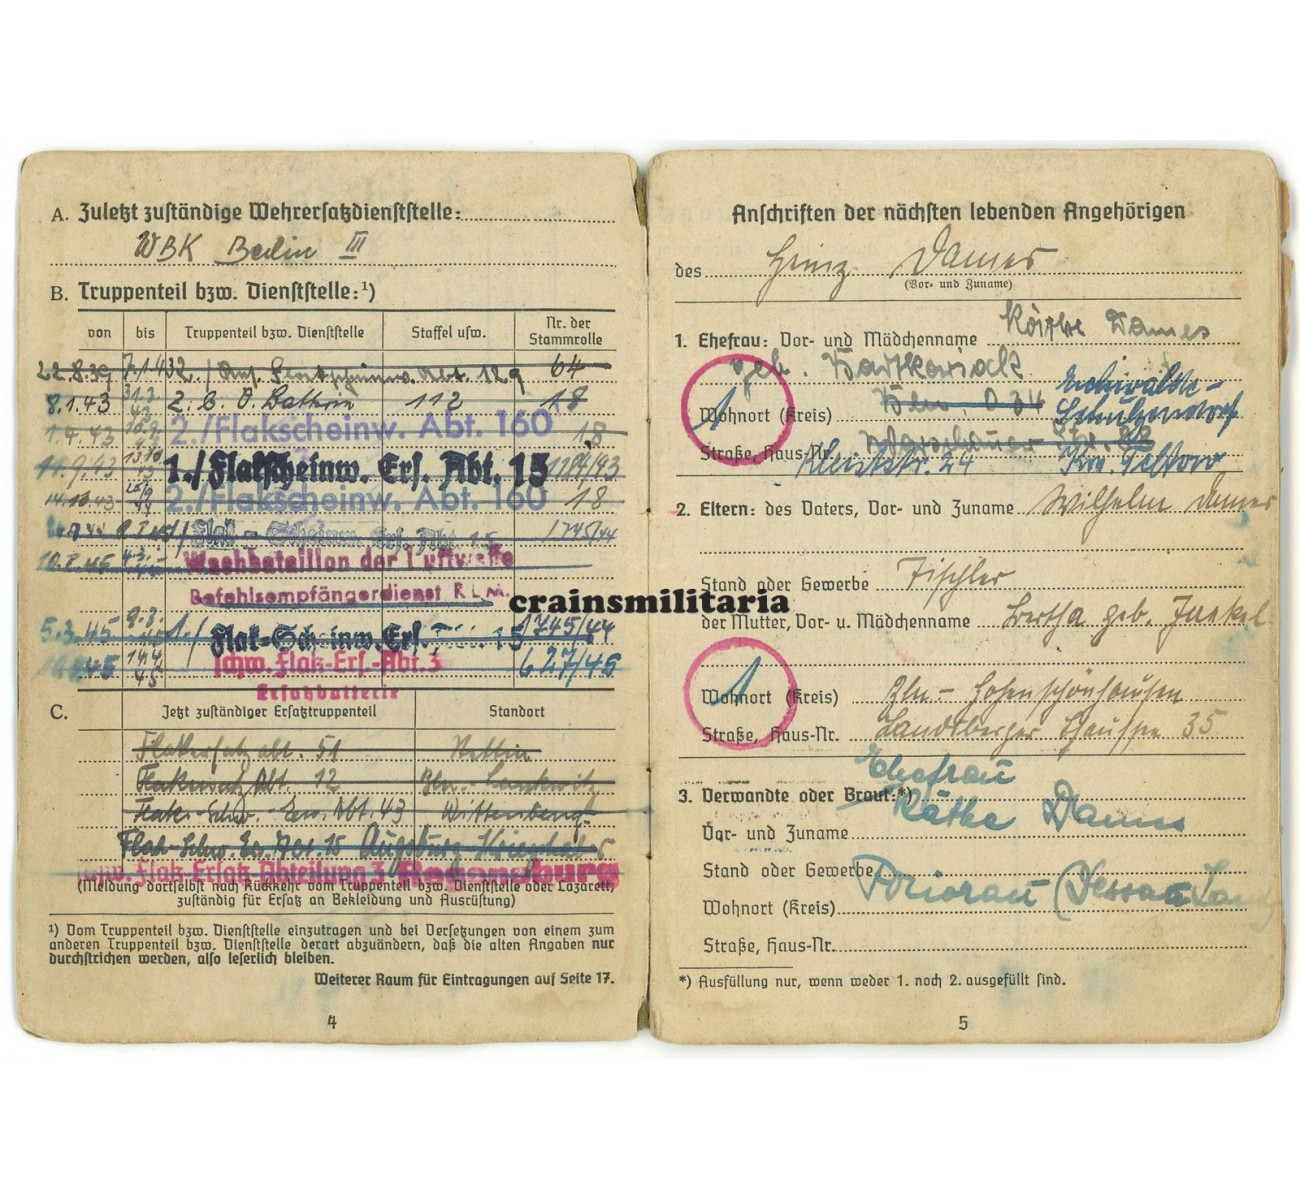 A. Zuletzt zuständige Wehrersatzdienststelle:
WBK Berlin III
B. Truppenteil bzw. Dienststelle:¹)
von bis Truppenteil bzw. Dienststelle Staffel usw. Nr. der Stammrolle
22.8.39 7.1.43 2./ Abt. 129 64
8.1.43 z.b.V. Battrie 112 18
1.4.43 2./Flakscheinw. Abt. 160 18
11.9.43 13.10.43 1./Flakscheinw. Ers. Abt. 15 1184/93
14.10.43 2./Flakscheinw. Abt. 160 18
1./Flak-Scheinw. Ers. Abt. 15 1745/44
Wachbataillon der Luftwaffe
Befehlsempfängerdienst R.L.M.
crainsmilitaria
5.3.45 1./ Flak-Scheinw. Ers. 15 1745/44
14.4.45 schw. Flak-Ers.-Abt. 3 627/45
Ersatzbatterie
C. Jetzt zuständiger Ersatztruppenteil Standort
Flakersatzabt. 51 Stettin
Flakersatz Abt. 12 Bln. Lankwitz
Abt. 43 Wittenberg
15 Augsburg
schw. Flak-Ersatz-Abteilung 3 Regensburg
(Meldung dortselbst nach Rückkehr vom Truppenteil bzw. Dienststelle oder Lazarett,
zuständig für Ersatz an Bekleidung und Ausrüstung)
¹) Vom Truppenteil bzw. Dienststelle einzutragen und bei Versetzungen von einem zum
anderen Truppenteil bzw. Dienststelle derart abzuändern, daß die alten Angaben nur
durchstrichen werden, also leserlich bleiben.
Weiterer Raum für Eintragungen auf Seite 17.
4
Anschriften der nächsten lebenden Angehörigen
des Heinz Dames
(Vor- und Zuname)
1. Ehefrau: Vor- und Mädchenname Käthe Dames
geb. Bartkowiack
Wohnort (Kreis) Bln. O 34 Eichwalde-
Schulzendorf
Straße, Haus-Nr. Warschauer Str. Kleiststr. 24 Krs. Teltow
1
2. Eltern: des Vaters, Vor- und Zuname Wilhelm Dames
Stand oder Gewerbe Tischler
der Mutter, Vor- u. Mädchenname Bertha geb. Junkel
Wohnort (Kreis) Bln.- Hohenschönhausen
1
Straße, Haus-Nr. Landsberger Chaussee 35
Ehefrau
3. Verwandte oder Braut:*)
Vor- und Zuname Käthe Dames
Stand oder Gewerbe
Wohnort (Kreis) Priorau (Dessau Land
Straße, Haus-Nr.
*) Ausfüllung nur, wenn weder 1. noch 2. ausgefüllt sind.
5